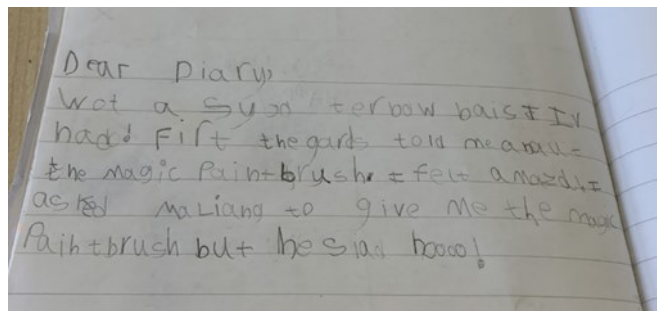 Dear Diary,
Wot a terbow I Iv
had! Firt the gards told me
the magic Paintbrush. I felt amazd! I
asked MaLiang to give me the magic
Paintbrush but he noooo!